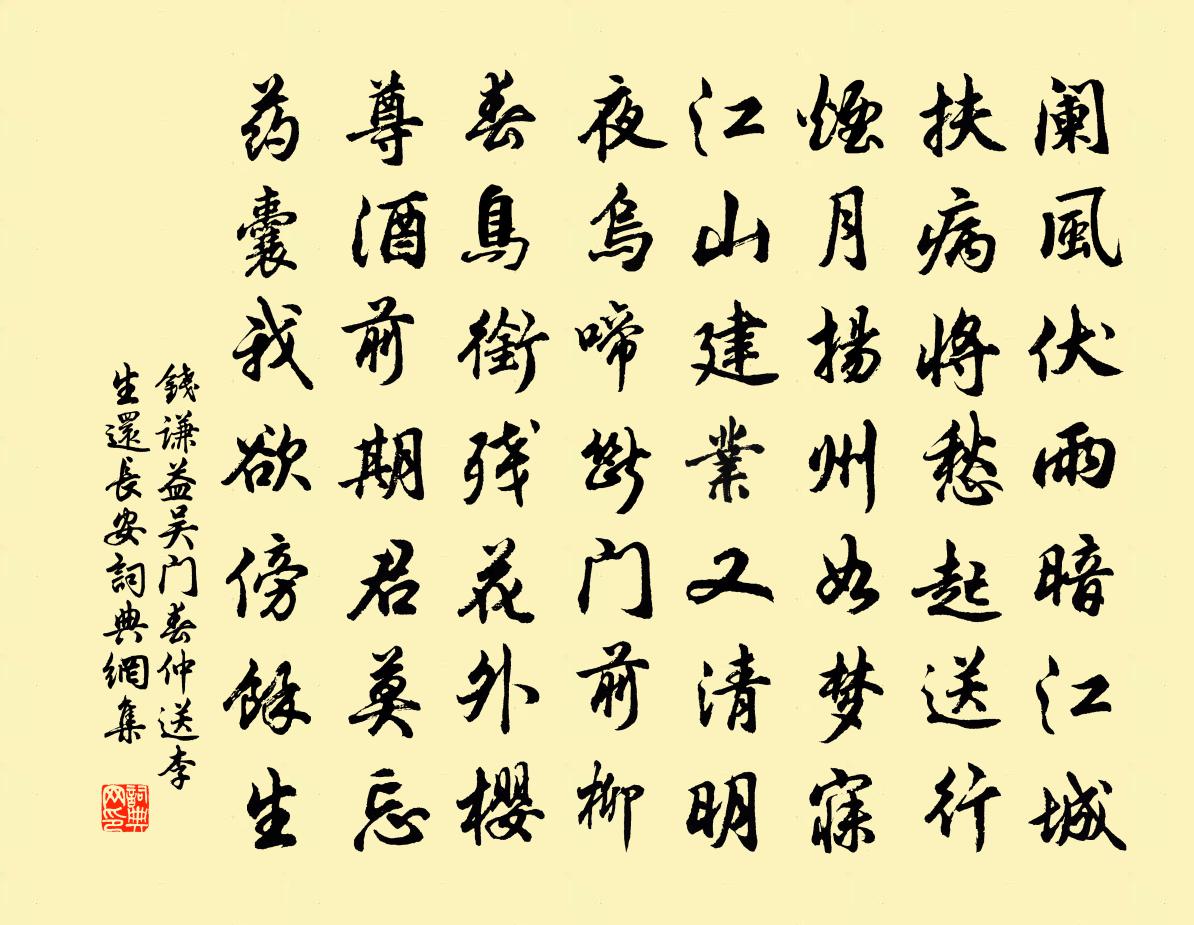 阑風伏雨暗江城
扶病將愁起送行
煙月揚州如梦寐
江山建業又清明
夜烏啼斷门前柳
春鳥銜残花外櫻
尊酒前期君莫忘
药囊我欲傍餘生
錢谦益吴门春仲送李
生還長安詞典網集
詞典网印